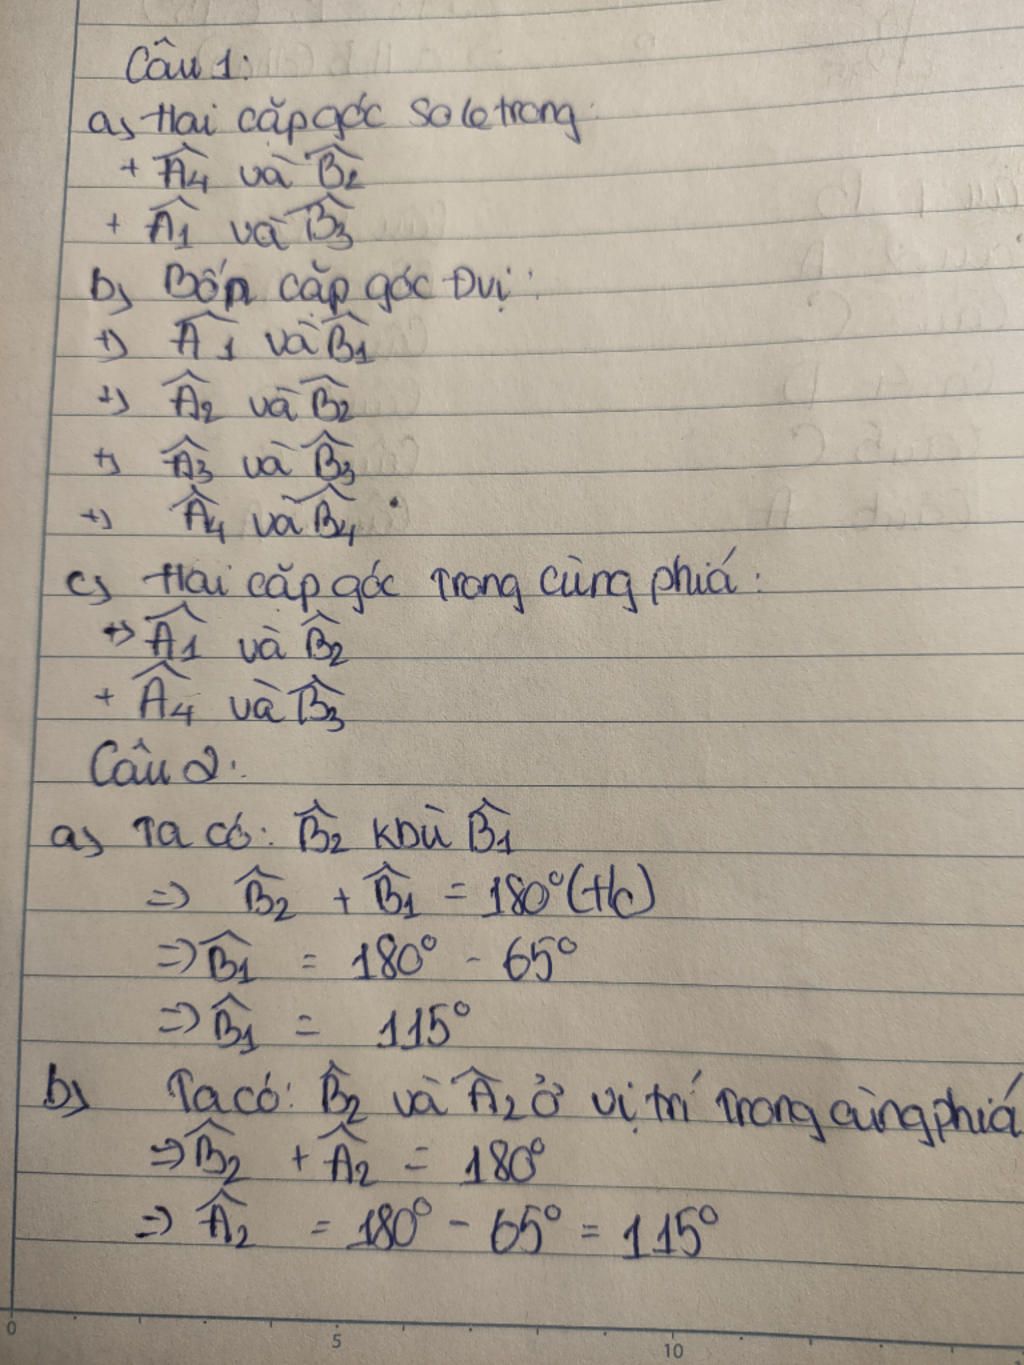 Câu 1:
a, Hai cặp góc so le trong:
+ Â4 và B̂2
+ Â1 và B̂3
b, Bốn cặp góc Đvị:
+) Â1 và B̂1
+) Â2 và B̂2
+) Â3 và B̂3
+) Â4 và B̂4
c, Hai cặp góc Trong cùng phiá:
+) Â1 và B̂2
+ Â4 và B̂3
Câu 2:
a, Ta có: B̂2 KBÙ B̂1
=> B̂2 + B̂1 = 180° (t/c)
=> B̂1 = 180° - 65°
=> B̂1 = 115°
b, Ta có: B̂2 và Â2 ở vị trí Trong cùng phiá
=> B̂2 + Â2 = 180°
=> Â2 = 180° - 65° = 115°
0 5 10